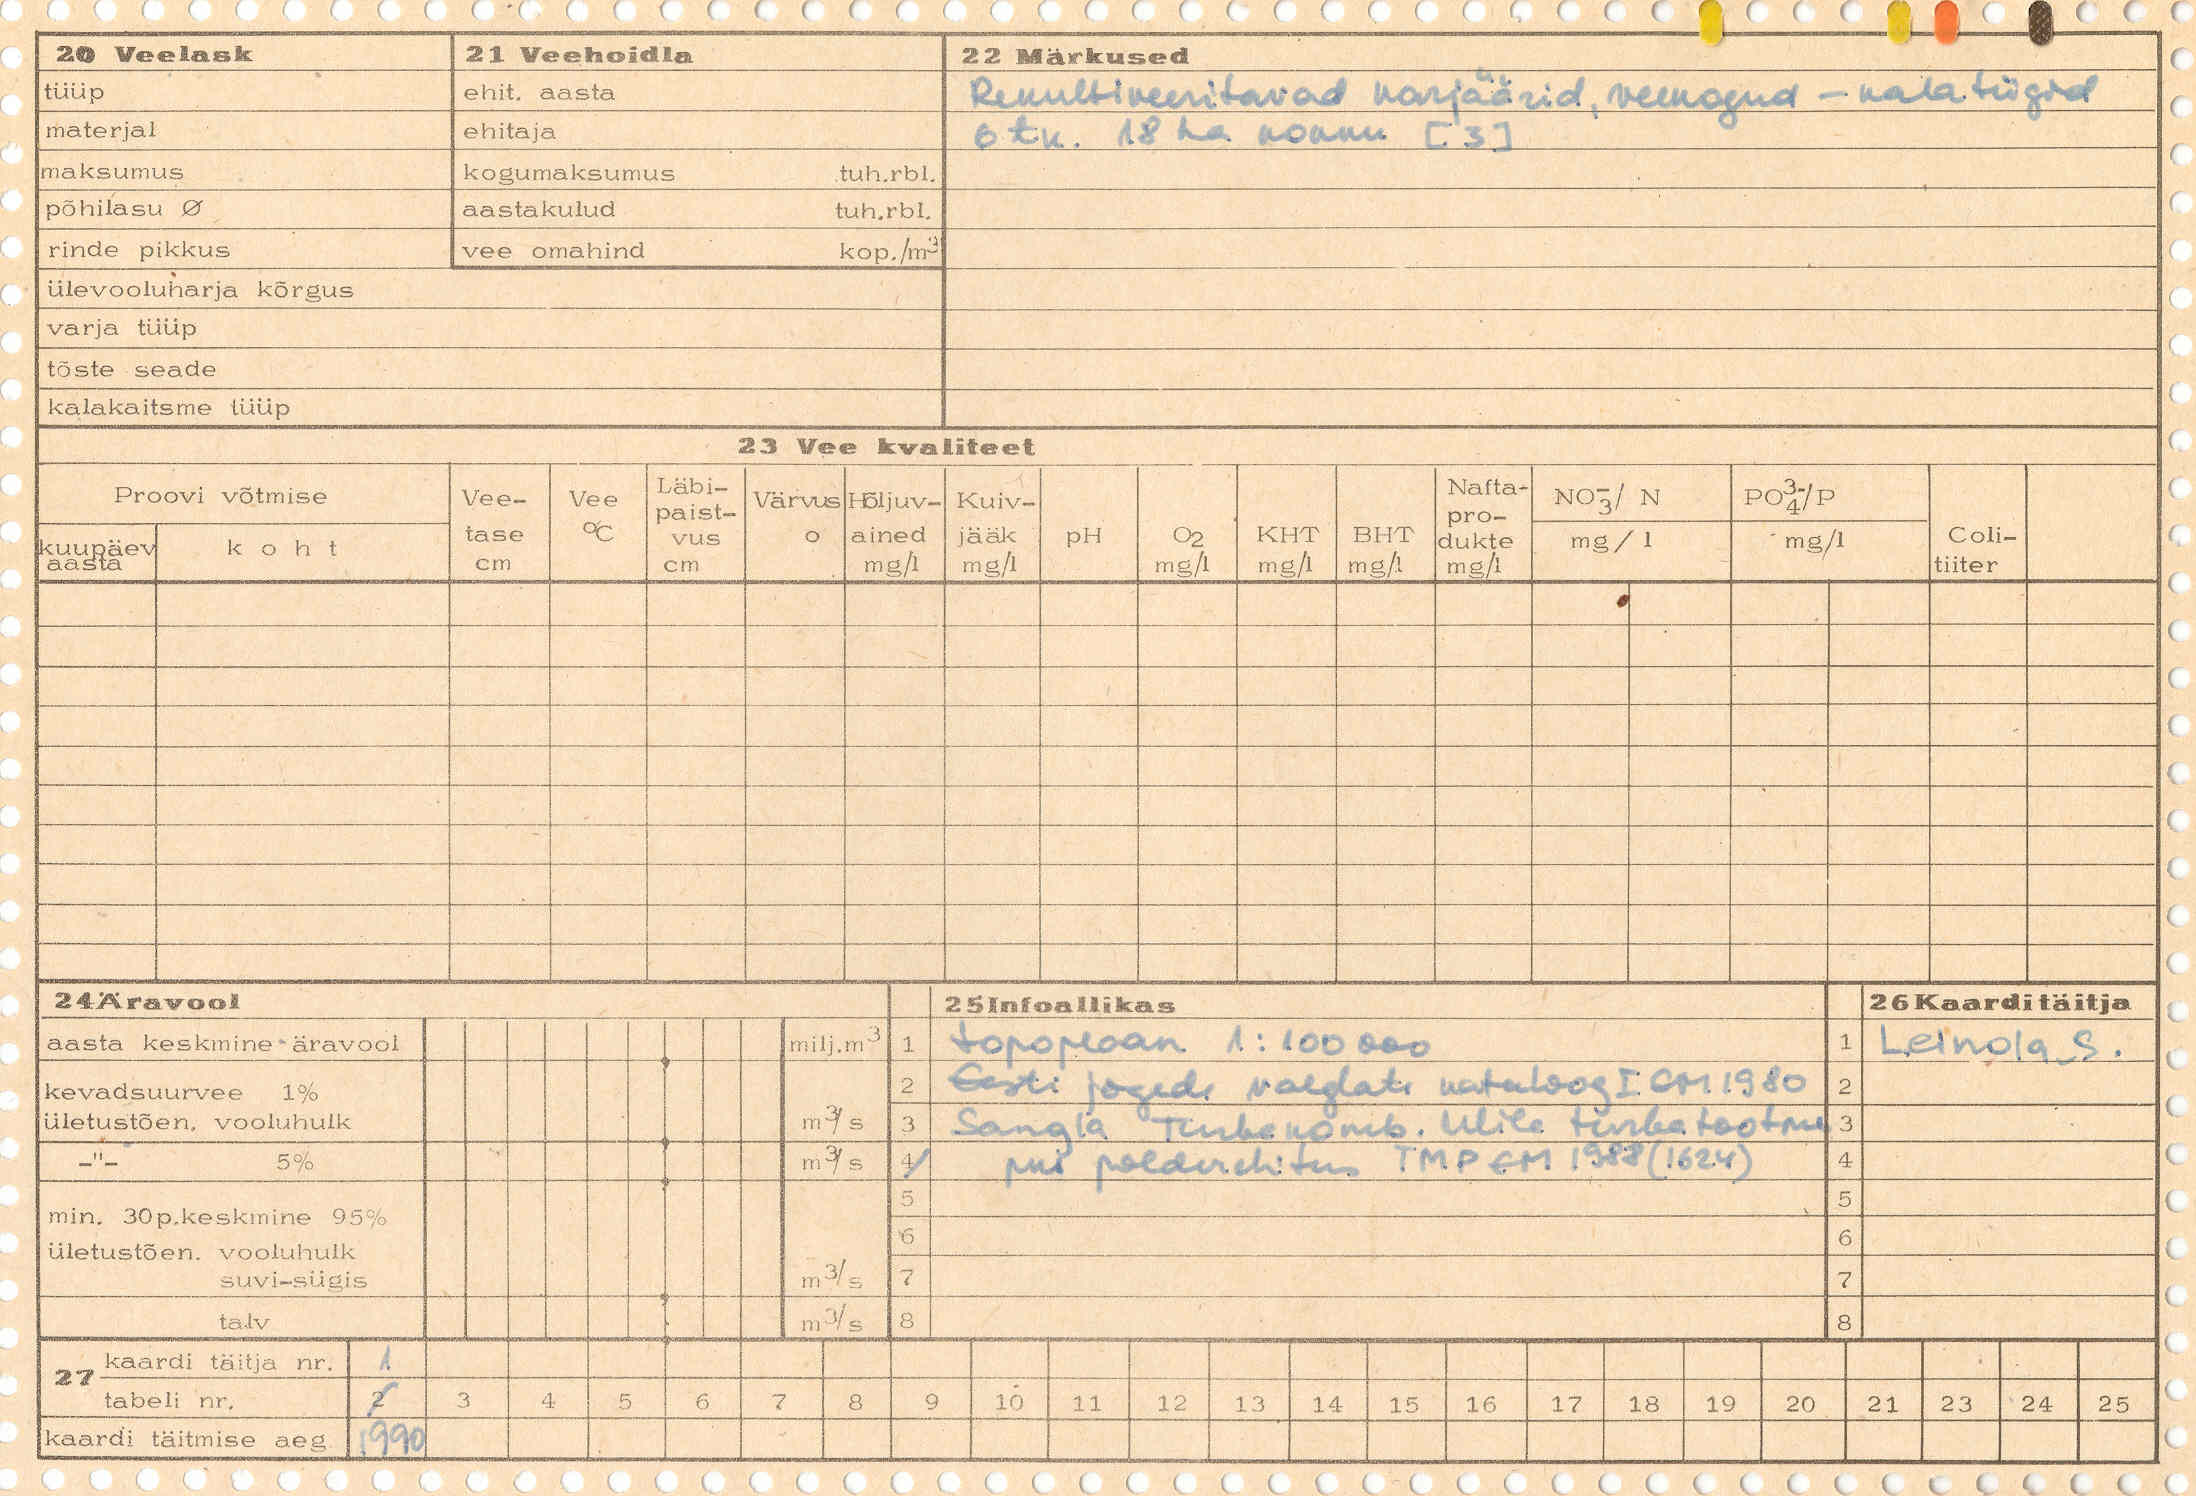 20 Veelask
21 Veehoidla
22 Märkused
tüüp
ehit. aasta
Rekultiveeritavad karjäärid, veekogud – kalatiigid
materjal
ehitaja
6 tk. 18 ha kokku [3]
maksumus
kogumaksumus tuh.rbl.
põhilasu Ø
aastakulud tuh.rbl.
rinde pikkus
vee omahind kop./m³
ülevooluharja kõrgus
varja tüüp
tõste seade
kalakaitsme tüüp
23 Vee kvaliteet
Proovi võtmise
kuupäev aasta
koht
Vee-tase cm
Vee °C
Läbi-paist-vus cm
Värvus o
Hõljuv-ained mg/l
Kuiv-jääk mg/l
pH
O2 mg/l
KHT mg/l
BHT mg/l
Nafta-pro-dukte mg/l
NO3-/ N mg/l
PO4 3-/P mg/l
Coli-tiiter
24 Äravool
25 Infoallikas
26 Kaardi täitja
aasta keskmine äravool milj.m³
1 topoplaan 1:100 000
1 Leinola S.
kevadsuurvee 1%
2 Eesti jõgede valglate kataloog I EM 1980
2
ületustõen. vooluhulk m³/s
3 Sangla Turbakomb. Ulila turbatootmis
3
-"- 5% m³/s
4 polderehitus TMP EM 1988 (1624)
4
5
5
min. 30p.keskmine 95%
6
6
ületustõen. vooluhulk
suvi-sügis m³/s
7
7
talv m³/s
8
8
27 kaardi täitja nr. 1
tabeli nr. 2 3 4 5 6 7 8 9 10 11 12 13 14 15 16 17 18 19 20 21 23 24 25
kaardi täitmise aeg 1990